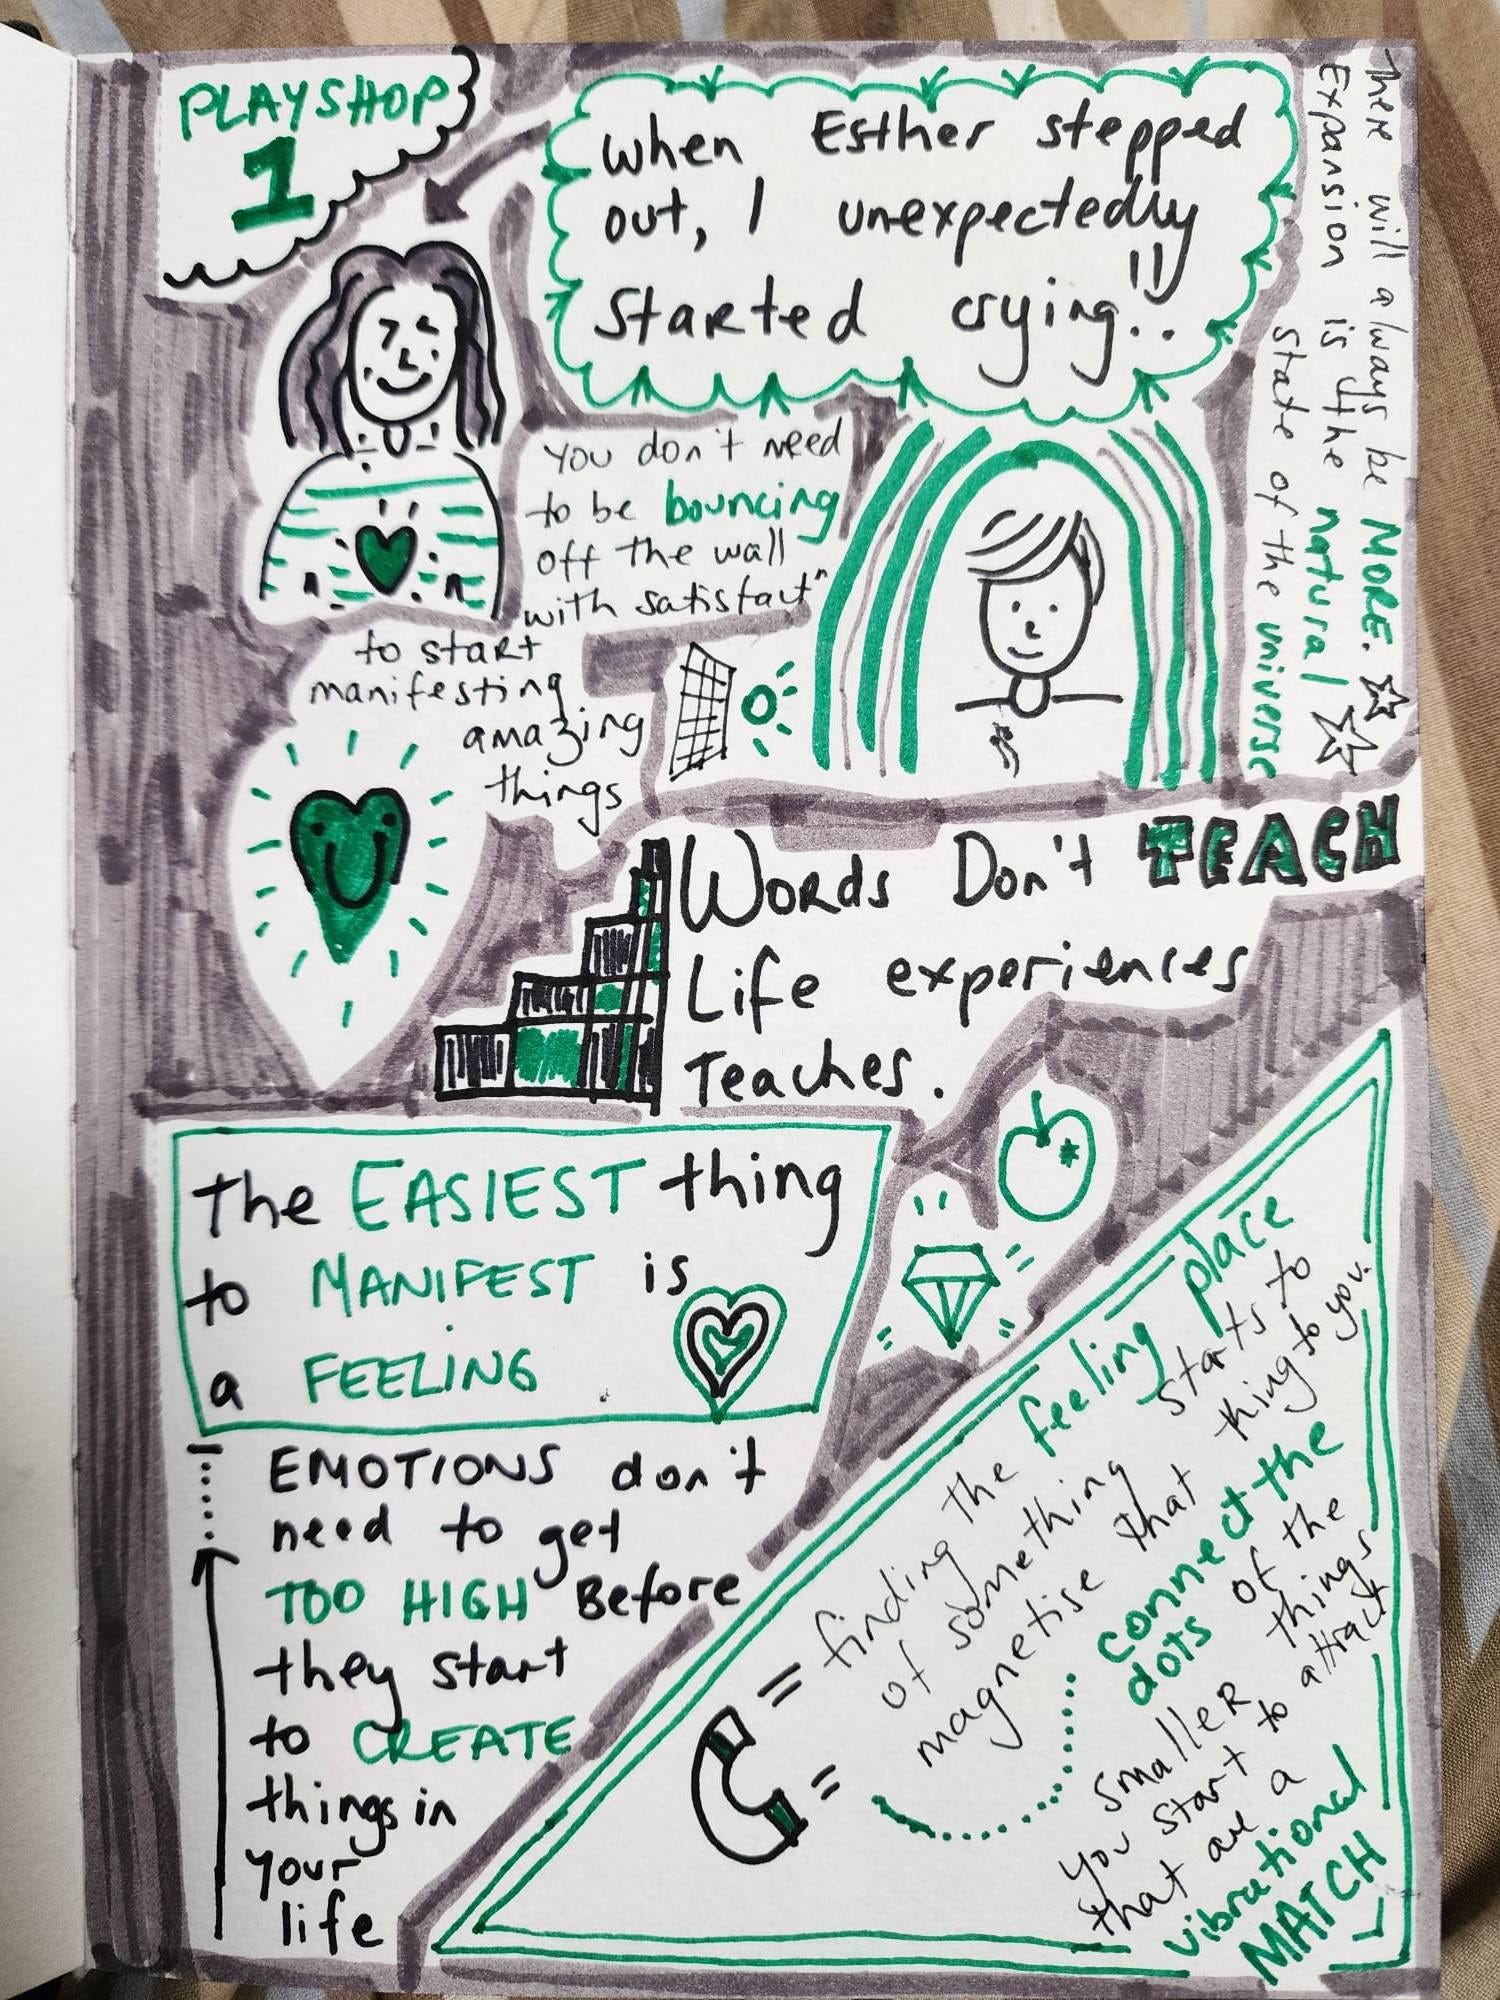 PLAYSHOP
1
When Esther stepped
out, I unexpectedly
started crying..!!
There will always be MORE.
Expansion is the natural
state of the universe
You don't need
to be bouncing
off the wall
with satisfactⁿ
to start
manifesting
amazing
things
Words Don't TEACH
Life experiences
Teaches.
the EASIEST thing
to MANIFEST is
a FEELING
EMOTIONS don't
need to get
TOO HIGH Before
they start
to CREATE
things in
your
life
= finding the feeling place
of something starts to
magnetise that thing to you.
= connect the
dots of the
smaller things
you start to attract
that are a
vibrational
MATCH